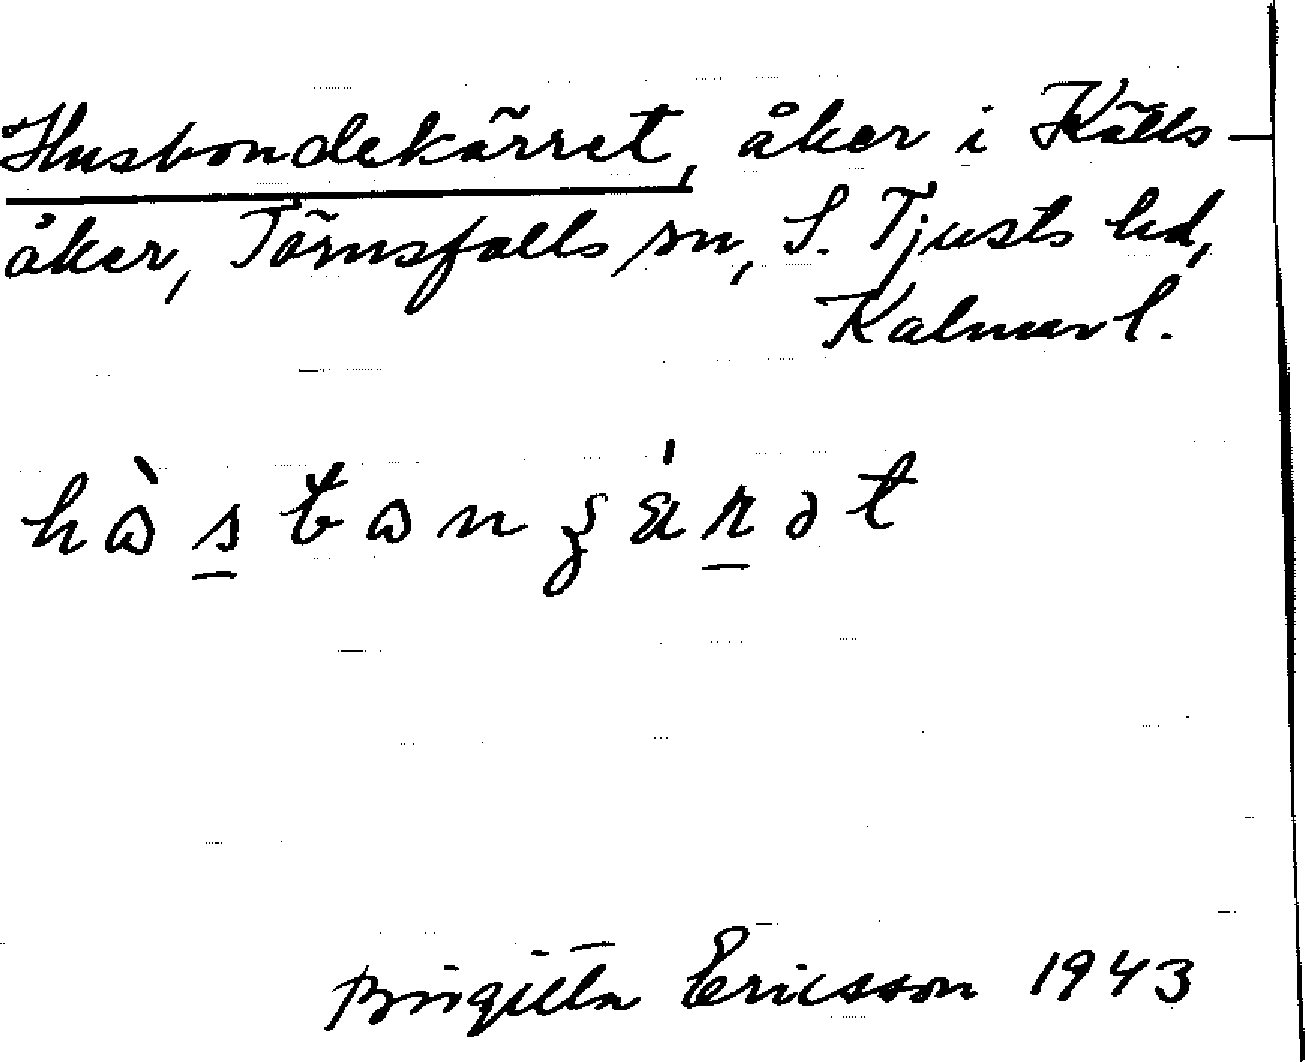 Husbondekärret, åker i Källs-
åker, Törnsfalls sn, S. Tjusts hd,
Kalmar l.
Birgitta Ericsson 1943